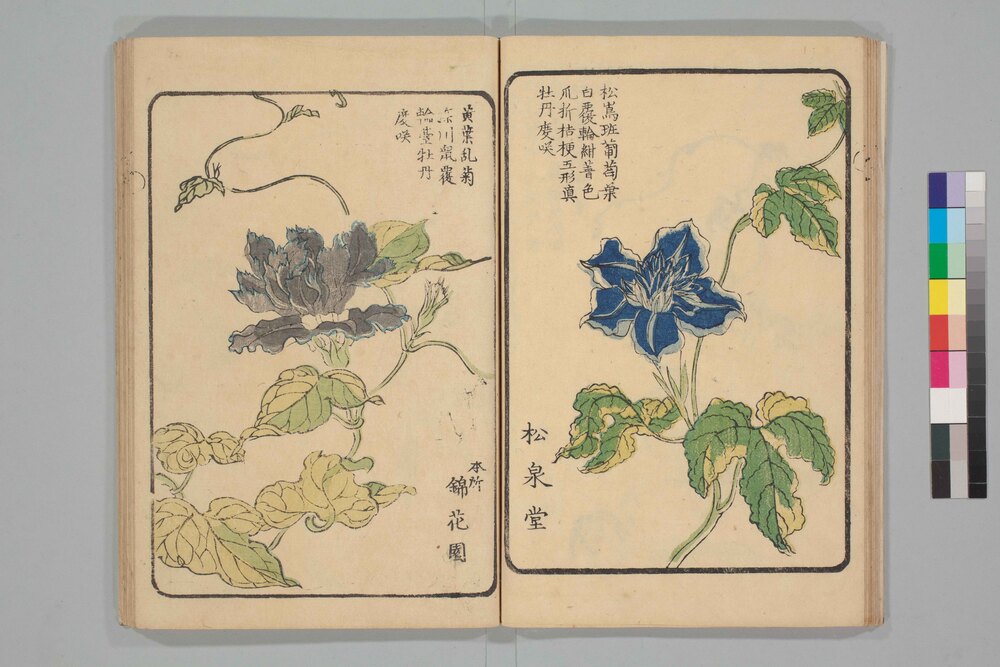 松嶌斑葡萄葉
白覆輪紺菁色
爪折桔梗五形真
牡丹度咲
松泉堂
黄葉乱菊
川鼠覆
輪臺牡丹
度咲
本所
錦花園